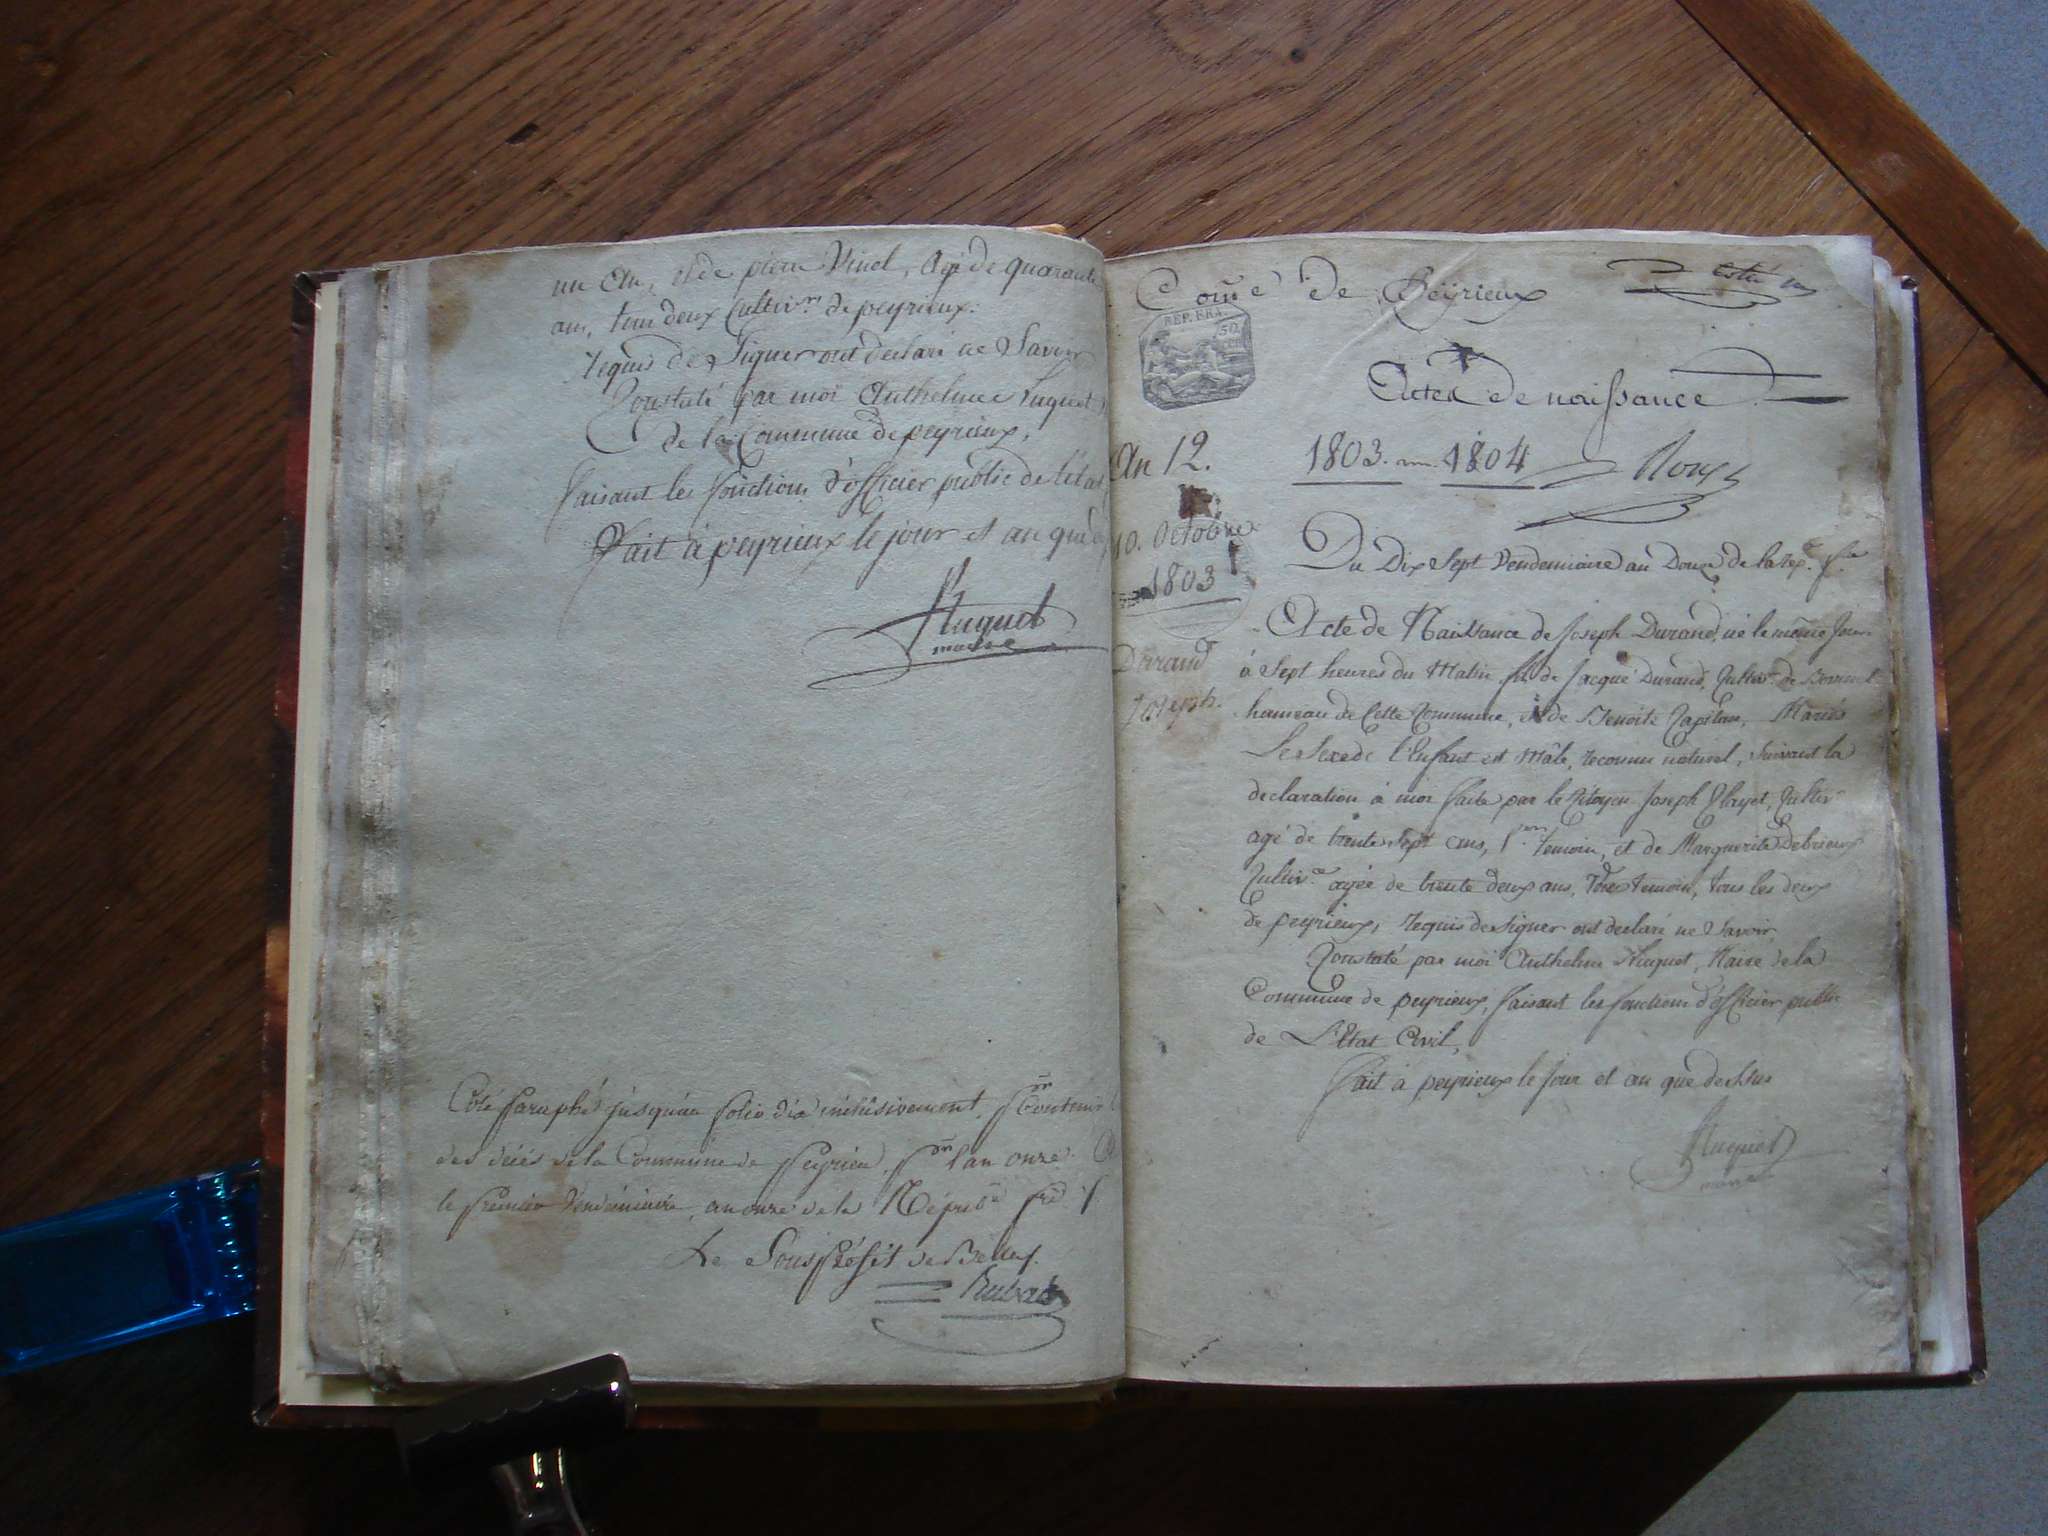 un an, et de pierre Vinel, agé de quarante
ans, tous deux Cultiv.rs de peyrieux.
Requis de Signer ont declaré ne Savoir
Constaté par moi Anthelme Huguet
de la Commune de peyrieux,
faisant les fonctions d'officier public de l'état
Fait à peyrieux le jour et an que
Huguet
maire
Coté paraphé jusqu'au folio inclusivement, pr contenir
des décès de la Commune de peyrieu, pr l'an onze
le premier Vendémiaire, an onze de la Répub.e fse
Le Sous préfet de Belley.
Coñe de Peyrieux
REP. FRA.
50
Actes de naissance
An 12.
1803. 1804
Roux
10. Octobre
1803
Durand
Joseph.
Du Dix Sept Vendemiaire an Douze de la rep.e f.se
Acte de Naissance de Joseph Durand, né le même Jour
à Sept heures du Matin, fils de Jacque Durand, Cultiv.r de
hameau de Cette Commune, et de Benoite Mariés
Le Sexe de l'Enfant est mâle, reconnu naturel, Suivant la
declaration à moi faite par le Citoyen Joseph Cultiv.r
agé de trente Sept ans, 1.er Temoin, et de Marguerite
Cultiv.ce agée de trente deux ans, temoin, tous les deux
de peyrieux, requis de Signer ont declaré ne Savoir,
Constaté par moi Anthelme Huguet, Maire de la
Commune de peyrieux, faisant les fonctions d'officier public
de L'Etat Civil,
Fait à peyrieux le Jour et an que dessus
Huguet
maire